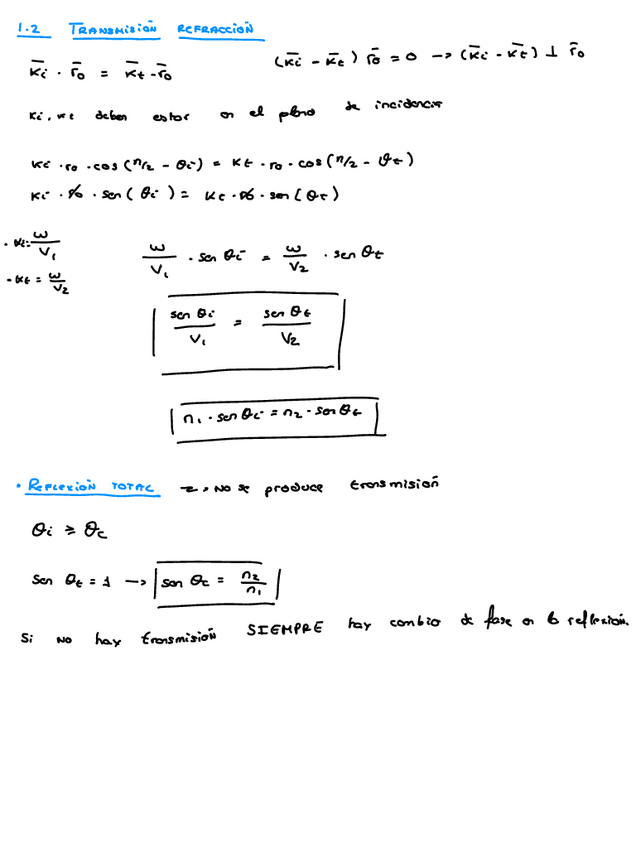 1.2 TRANSMISIÓN REFRACCIÓN
k̄i · r̄o = k̄t · r̄o (k̄i - k̄t) r̄o = 0 → (k̄i - k̄t) ⊥ r̄o
ki, kt deben estar en el plano de incidencia
ki · ro · cos(π/2 - θi) = kt · ro · cos(π/2 - θt)
ki · ro · sen(θi) = kt · ro · sen(θt)
· ki = ω/V1
- kt = ω/V2
ω/V1 · sen θi = ω/V2 · sen θt
sen θi / V1 = sen θt / V2
n1 · sen θi = n2 · sen θt
· REFLEXIÓN TOTAL → No se produce transmisión
θi ≥ θc
sen θt = 1 → sen θc = n2/n1
Si no hay transmisión SIEMPRE hay cambio de fase en la reflexión.